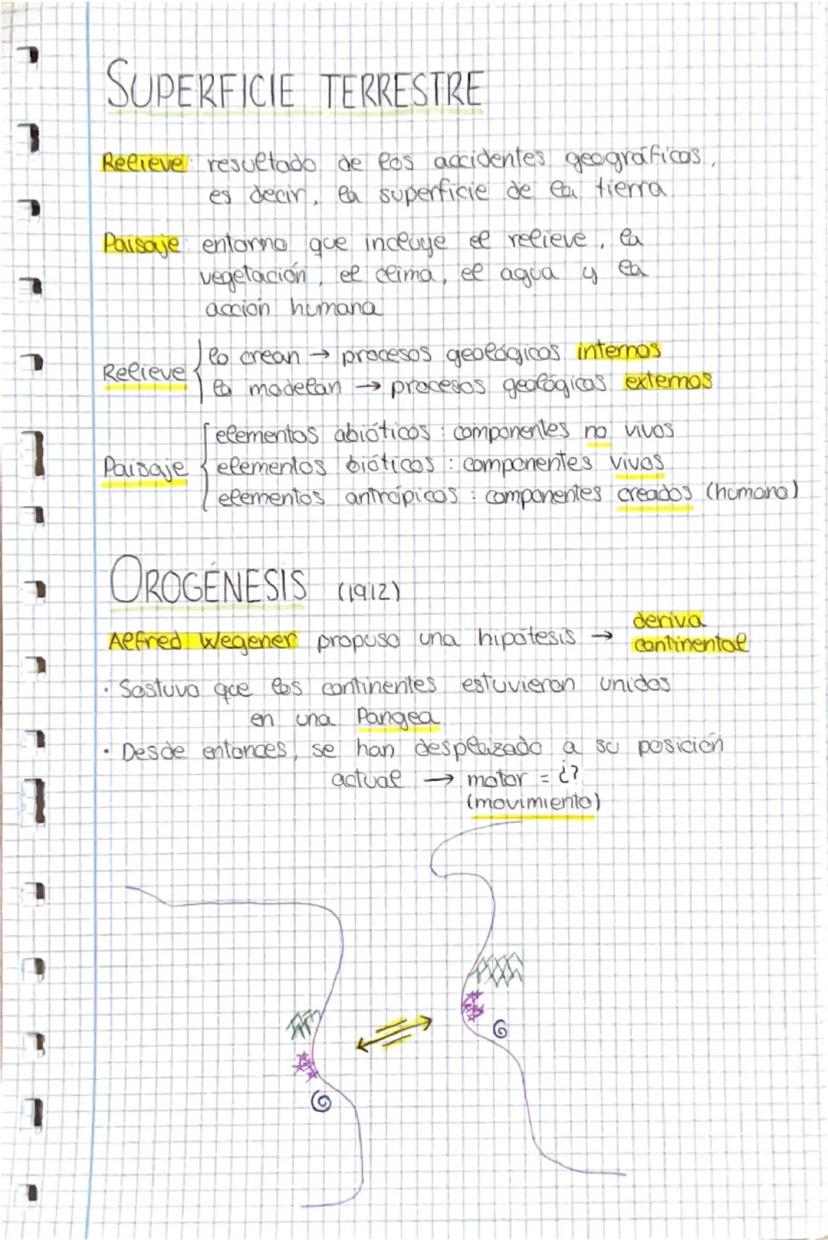 SUPERFICIE TERRESTRE
Relieve: resultado de los accidentes geográficos,
es decir, la superficie de la tierra
Paisaje: entorno que incluye el relieve, la
vegetación, el clima, el agua y la
acción humana
Relieve { lo crean → procesos geológicos internos
lo modelan → procesos geológicos externos
elementos abióticos: componentes no vivos
Paisaje { elementos bióticos: componentes vivos
elementos antrópicos: componentes creados (humano)
OROGÉNESIS (1912)
Alfred Wegener propuso una hipótesis → deriva
continental
· Sostuvo que los continentes estuvieron unidos
en una Pangea
· Desde entonces, se han desplazado a su posición
actual → motor = ¿?
(movimiento)